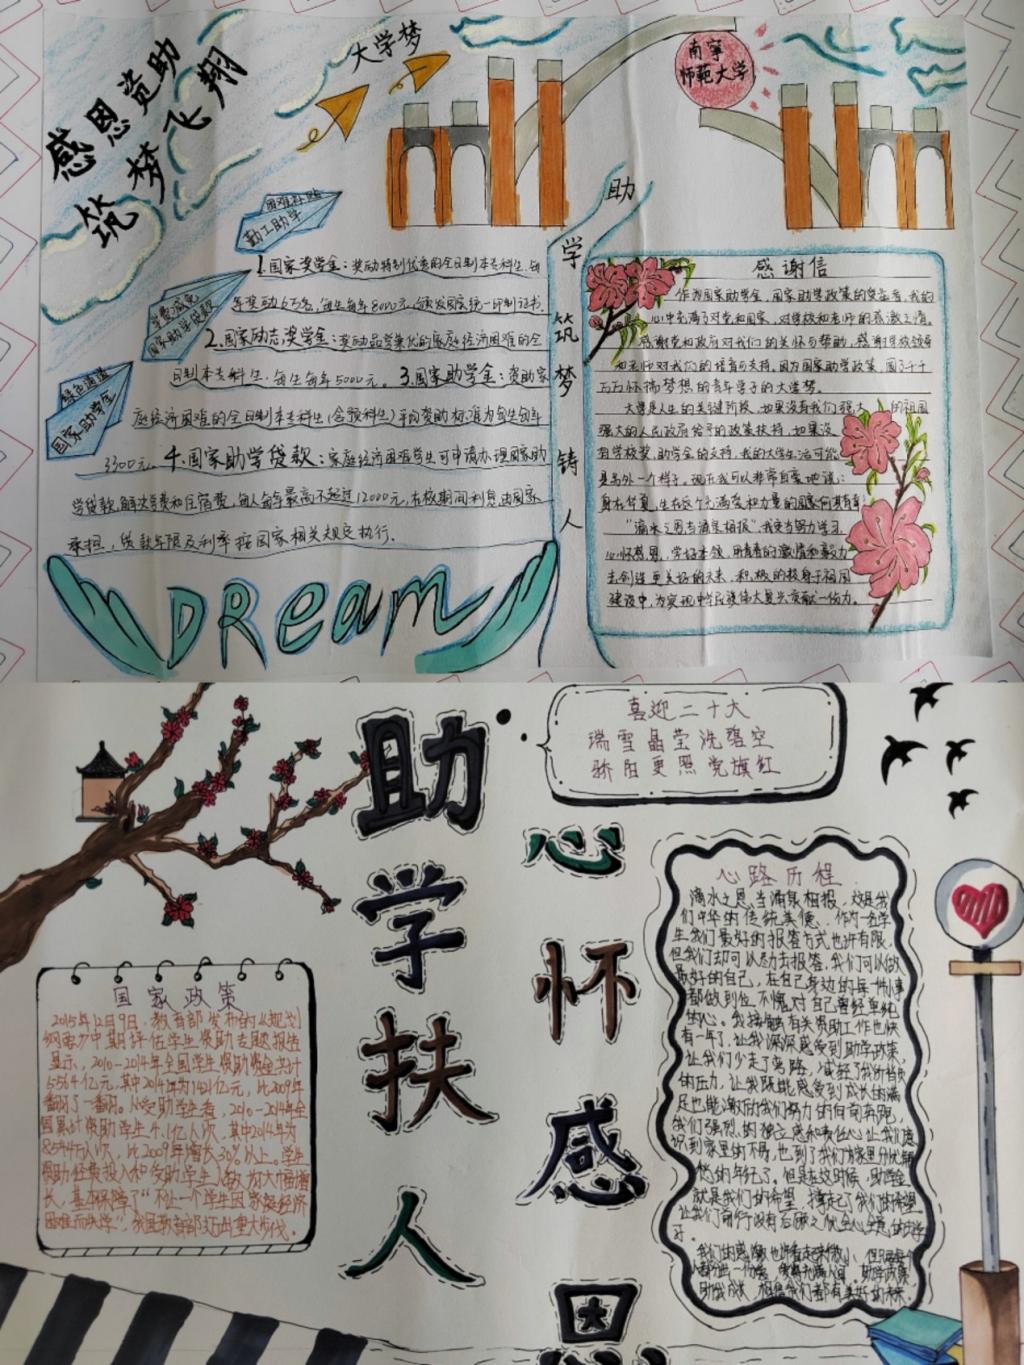 感恩资助
筑梦飞翔
大学梦
南宁
师范大学
困难补贴
勤工助学
学费减免
国家助学贷款
绿色通道
国家助学金
1.国家奖学金：奖励特别优秀的全日制本专科生，每
年奖励6万名，每生每年8000元，颁发国家统一印制证书.
2.国家励志奖学金：奖励品学兼优的家庭经济困难的全
日制本专科生，每生每年5000元。3.国家助学金：资助家
庭经济困难的全日制本专科生(含预科生)平均资助标准为每生每年
3300元。4.国家助学贷款：家庭经济困难学生可申请办理国家助
学贷款,解决学费和住宿费,每人每年最高不超过12000元,在校期间利息由国家
承担，贷款年限及利率按国家相关规定执行.
DReam
助学筑梦铸人
感谢信
作为国家助学金、国家助学政策的受益者，我的
心中充满了对党和国家、对学校和老师的感激之情。
感谢党和政府对我们的关怀与帮助，感谢学校领导
和老师对我们的培育与支持，因为国家助学政策，圆了千千
万万怀揣梦想的青年学子的大学梦。
大学是人生的关键阶段，如果没有我们强大的祖国
强大的人民政府给予的政策扶持，如果没
有学校奖、助学金的支持，我的大学生活可能
是另外一个样子。现在我可以非常自豪地说：
身在华夏，生在这个充满爱和力量的国家何其有幸！
“滴水之恩当涌泉相报”我更当努力学习，
心怀感恩，学好本领，用青春的激情和毅力
去创造更美好的未来，积极的投身于祖国
建设中，为实现中华民族伟大复兴贡献一份力。
助学扶人
心怀感恩
喜迎二十大
瑞雪晶莹洗碧空
骄阳更照党旗红
国家政策
2015年12月9日，教育部发布的《规划
纲要》中期评估学生资助专题报告
显示，2010-2014年全国学生资助资金共计
5564亿元,其中2014年为1421亿元，比2009年
翻了一番。从受助学生看，2010-2014年全
国累计资助学生4.1亿人次，其中2014年为
8544万人次，比2009年增长30%以上。学生
资助经费投入和受助学生人数的大幅增
长，基本保障了“不让一个学生因家庭经济
困难而失学”，我国教育部迈出重大步伐。
心路历程
滴水之恩,当涌泉相报，这是我
们中华的传统美德．作为一名学
生我们最好的报答方式也许有限，
但我们却可以尽力去报答，我们可以做
最好的自己，在自己身边的每一件小事
都做到位，不愧对自己曾经单纯
的心。我接触有关资助工作也快
有一年了，让我深深感受到助学政策，
让我们少走了弯路，减轻了我们
的压力，让我既能感受到成长的满
足也能激励我们努力的向前奔跑，
我们强烈的独立感和责任心让我们意
识到家里的不易，也到了我们为家里分忧解
的年纪了。但是在这时候，助学金
就是我们的希望，撑起了我们的希望
让我们前行没有后顾之忧,全心全意的学
习．